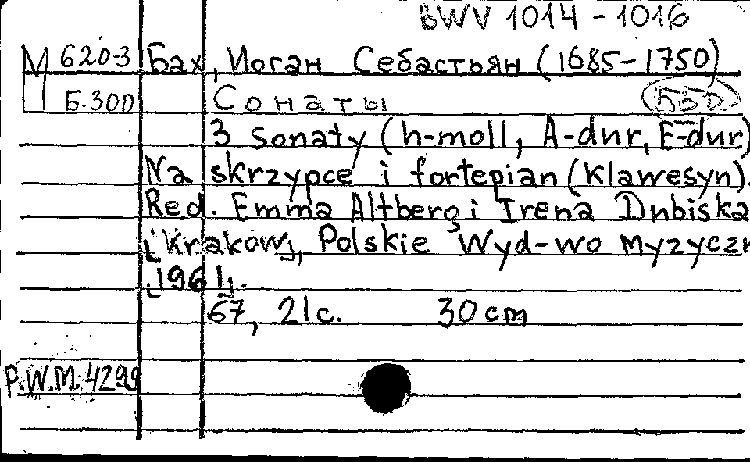 BWV 1014 - 1016
М 620-3 Бах, Иоган Себастьян (1685-1750)
Б-300 Сонаты
3 sonaty (h-moll, A-dur, E-dur)
Na skrzypce i fortepian (Klawesyn).
Red. Emma Altberg i Irena Dubiska
[Kraków], Polskie Wyd-wo myzyczn
[1961].
67, 21c. 30 cm
P.W.M. 4299